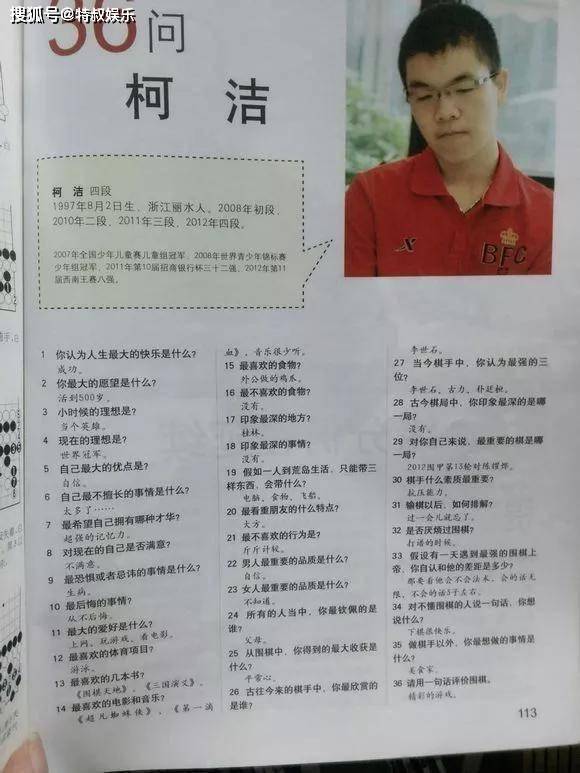 搜狐号@特叔娱乐
36问
柯 洁
柯 洁 四段
1997年8月2日生，浙江丽水人。2008年初段，
2010年二段，2011年三段，2012年四段。
2007年全国少年儿童赛儿童组冠军，2008年世界青少年锦标赛
少年组冠军，2011年第10届招商银行杯三十二强，2012年第11
届西南王赛八强。
BFC
1 你认为人生最大的快乐是什么？
成功。
2 你最大的愿望是什么？
活到500岁。
3 小时候的理想是？
当个英雄。
4 现在的理想是？
世界冠军。
5 自己最大的优点是？
自信。
6 自己最不擅长的事情是什么？
太多了……
7 最希望自己拥有哪种才华？
超强的记忆力。
8 对现在的自己是否满意？
不满意。
9 最恐惧或者忌讳的事情是什么？
生病。
10 最后悔的事情？
从不后悔。
11 最大的爱好是什么？
上网、玩游戏、看电影。
12 最喜欢的体育项目？
游泳。
13 最喜欢的几本书？
《围棋天地》、《三国演义》。
14 最喜欢的电影和音乐？
《超凡蜘蛛侠》、《第一滴
血》，音乐很少听。
15 最喜欢的食物？
外公做的鸡爪。
16 最不喜欢的食物？
没有。
17 印象最深的地方？
桂林。
18 印象最深的事情？
没有。
19 假如一人到荒岛生活，只能带三
样东西，会带什么？
电脑、食物、飞船。
20 最看重朋友的什么特点？
大方。
21 最不喜欢的行为是？
斤斤计较。
22 男人最重要的品质是什么？
自信。
23 女人最重要的品质是什么？
不知道。
24 所有的人当中，你最钦佩的是
谁？
父母。
25 从围棋中，你得到的最大收获是
什么？
平常心。
26 古往今来的棋手中，你最欣赏的
是谁？
李世石。
27 当今棋手中，你认为最强的三
位？
李世石、古力、朴廷桓。
28 古今棋局中，你印象最深的是哪
一局？
没有。
29 对你自己来说，最重要的棋是哪
一局？
2012围甲第13轮对陈耀烨。
30 棋手什么素质最重要？
抗压能力。
31 输棋以后，如何排解？
过一会儿就忘了。
32 是否厌烦过围棋？
打谱的时候。
33 假设有一天遇到最强的围棋上
帝，你自认和他的差距是多少？
那要看他会不会法术，会的话无
限，不会的话3子左右。
34 对不懂围棋的人说一句话，你想
说什么？
下棋很快乐。
35 做棋手以外，你最想做的事情是
什么？
美食家。
36 请用一句话评价围棋。
精彩的游戏。
113